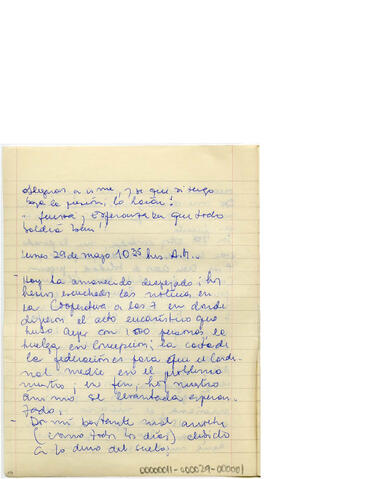 alegrar a irme, y se que si tengo
baja la presión, lo harán!
- fuerza y esperanza en que todo
saldrá bien!!
Lunes 29 de mayo 10 35 hrs A.M..
- Hoy ha amanecido despejado; hoy
hemos escuchado las noticias en
la Cooperativa a las 7 en donde
dijeron el acto eucarístico que
hubo ayer con 1500 personas, la
huelga en Concepción; la carta de
la federaciones para que el Carde-
nal medie en el problema
nuestro; en fin, hoy nuestro
animo se levantada esperan-
zado,
- Dormí bastante mal anoche
(como todos los días) debido
a lo duro del suelo;
00000011-000029-000001